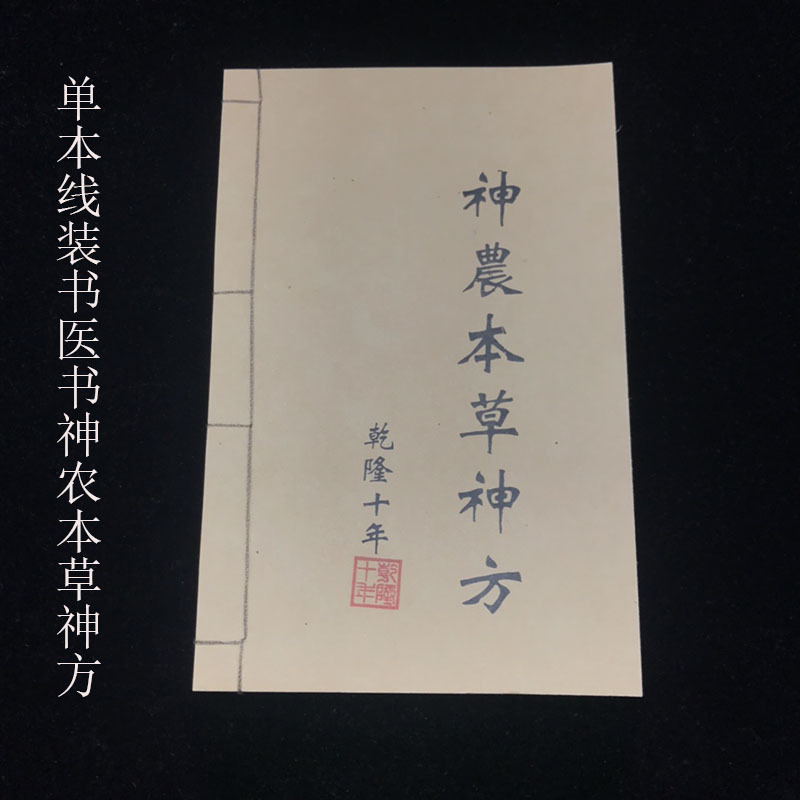 单本线装书医书神农本草神方
神農本草神方
乾隆十年
乾隆
十年